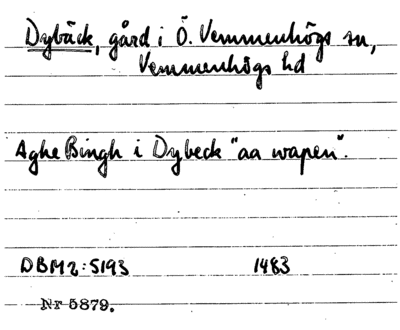 Dybäck, gård i Ö. Vemmenhögs sn,
Vemmenhögs hd
Aghe Bingh i Dybeck "aa wapen".
DBM2:5193 1483
Nr 5879.